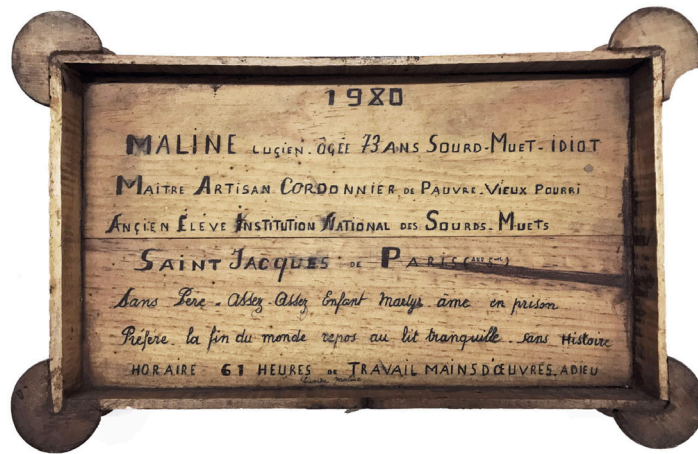 1980
MALINE LUÇIEN. ÂGÉE 73 ANS SOURD-MUET-IDIOT
MAITRE ARTISAN CORDONNIER DE PAUVRE. VIEUX POURRI
ANÇIEN ÉLEVE INSTITUTION NATIONAL DES SOURDS. MUETS
SAINT JACQUES DE PARIS
Sans Père. Assez. Assez Enfant Martyr âme en prison
Préfère la fin du monde repos au lit tranquille. sans Histoire
HORAIRE 61 HEURES DE TRAVAIL MAINS D'ŒUVRES. ADIEU